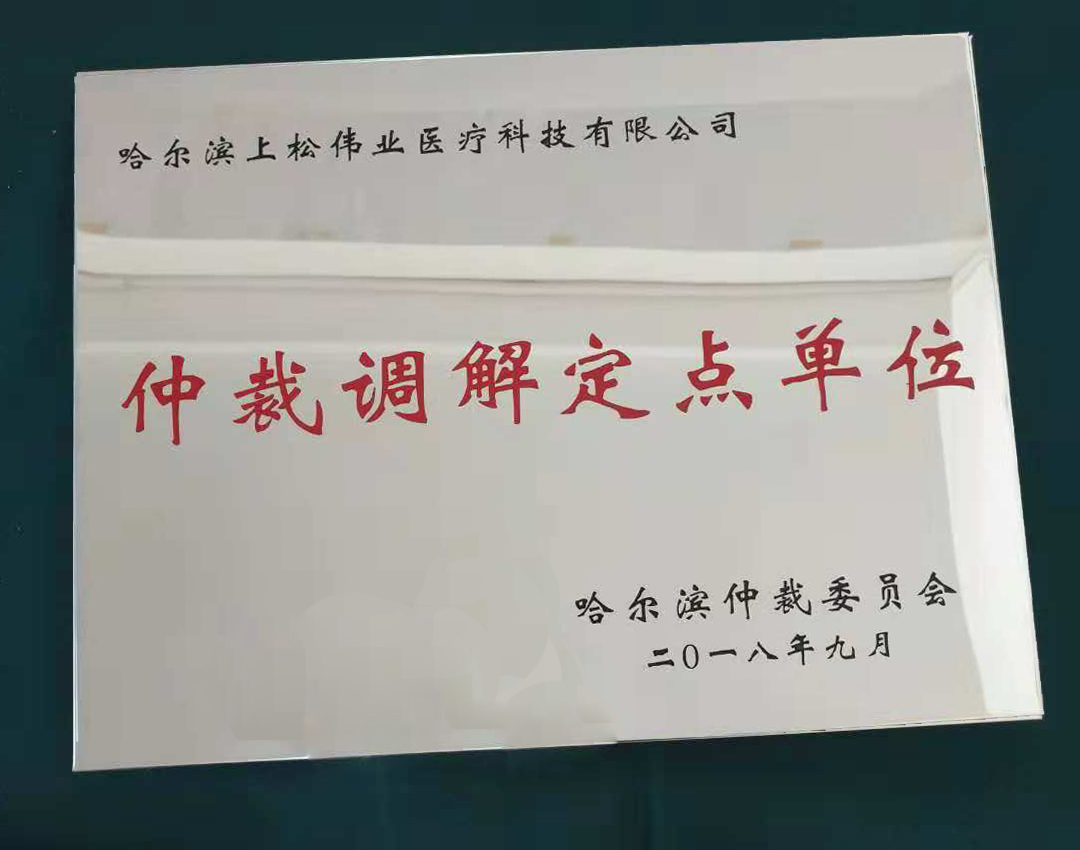 哈尔滨上松伟业医疗科技有限公司
仲裁调解定点单位
哈尔滨仲裁委员会
二0一八年九月